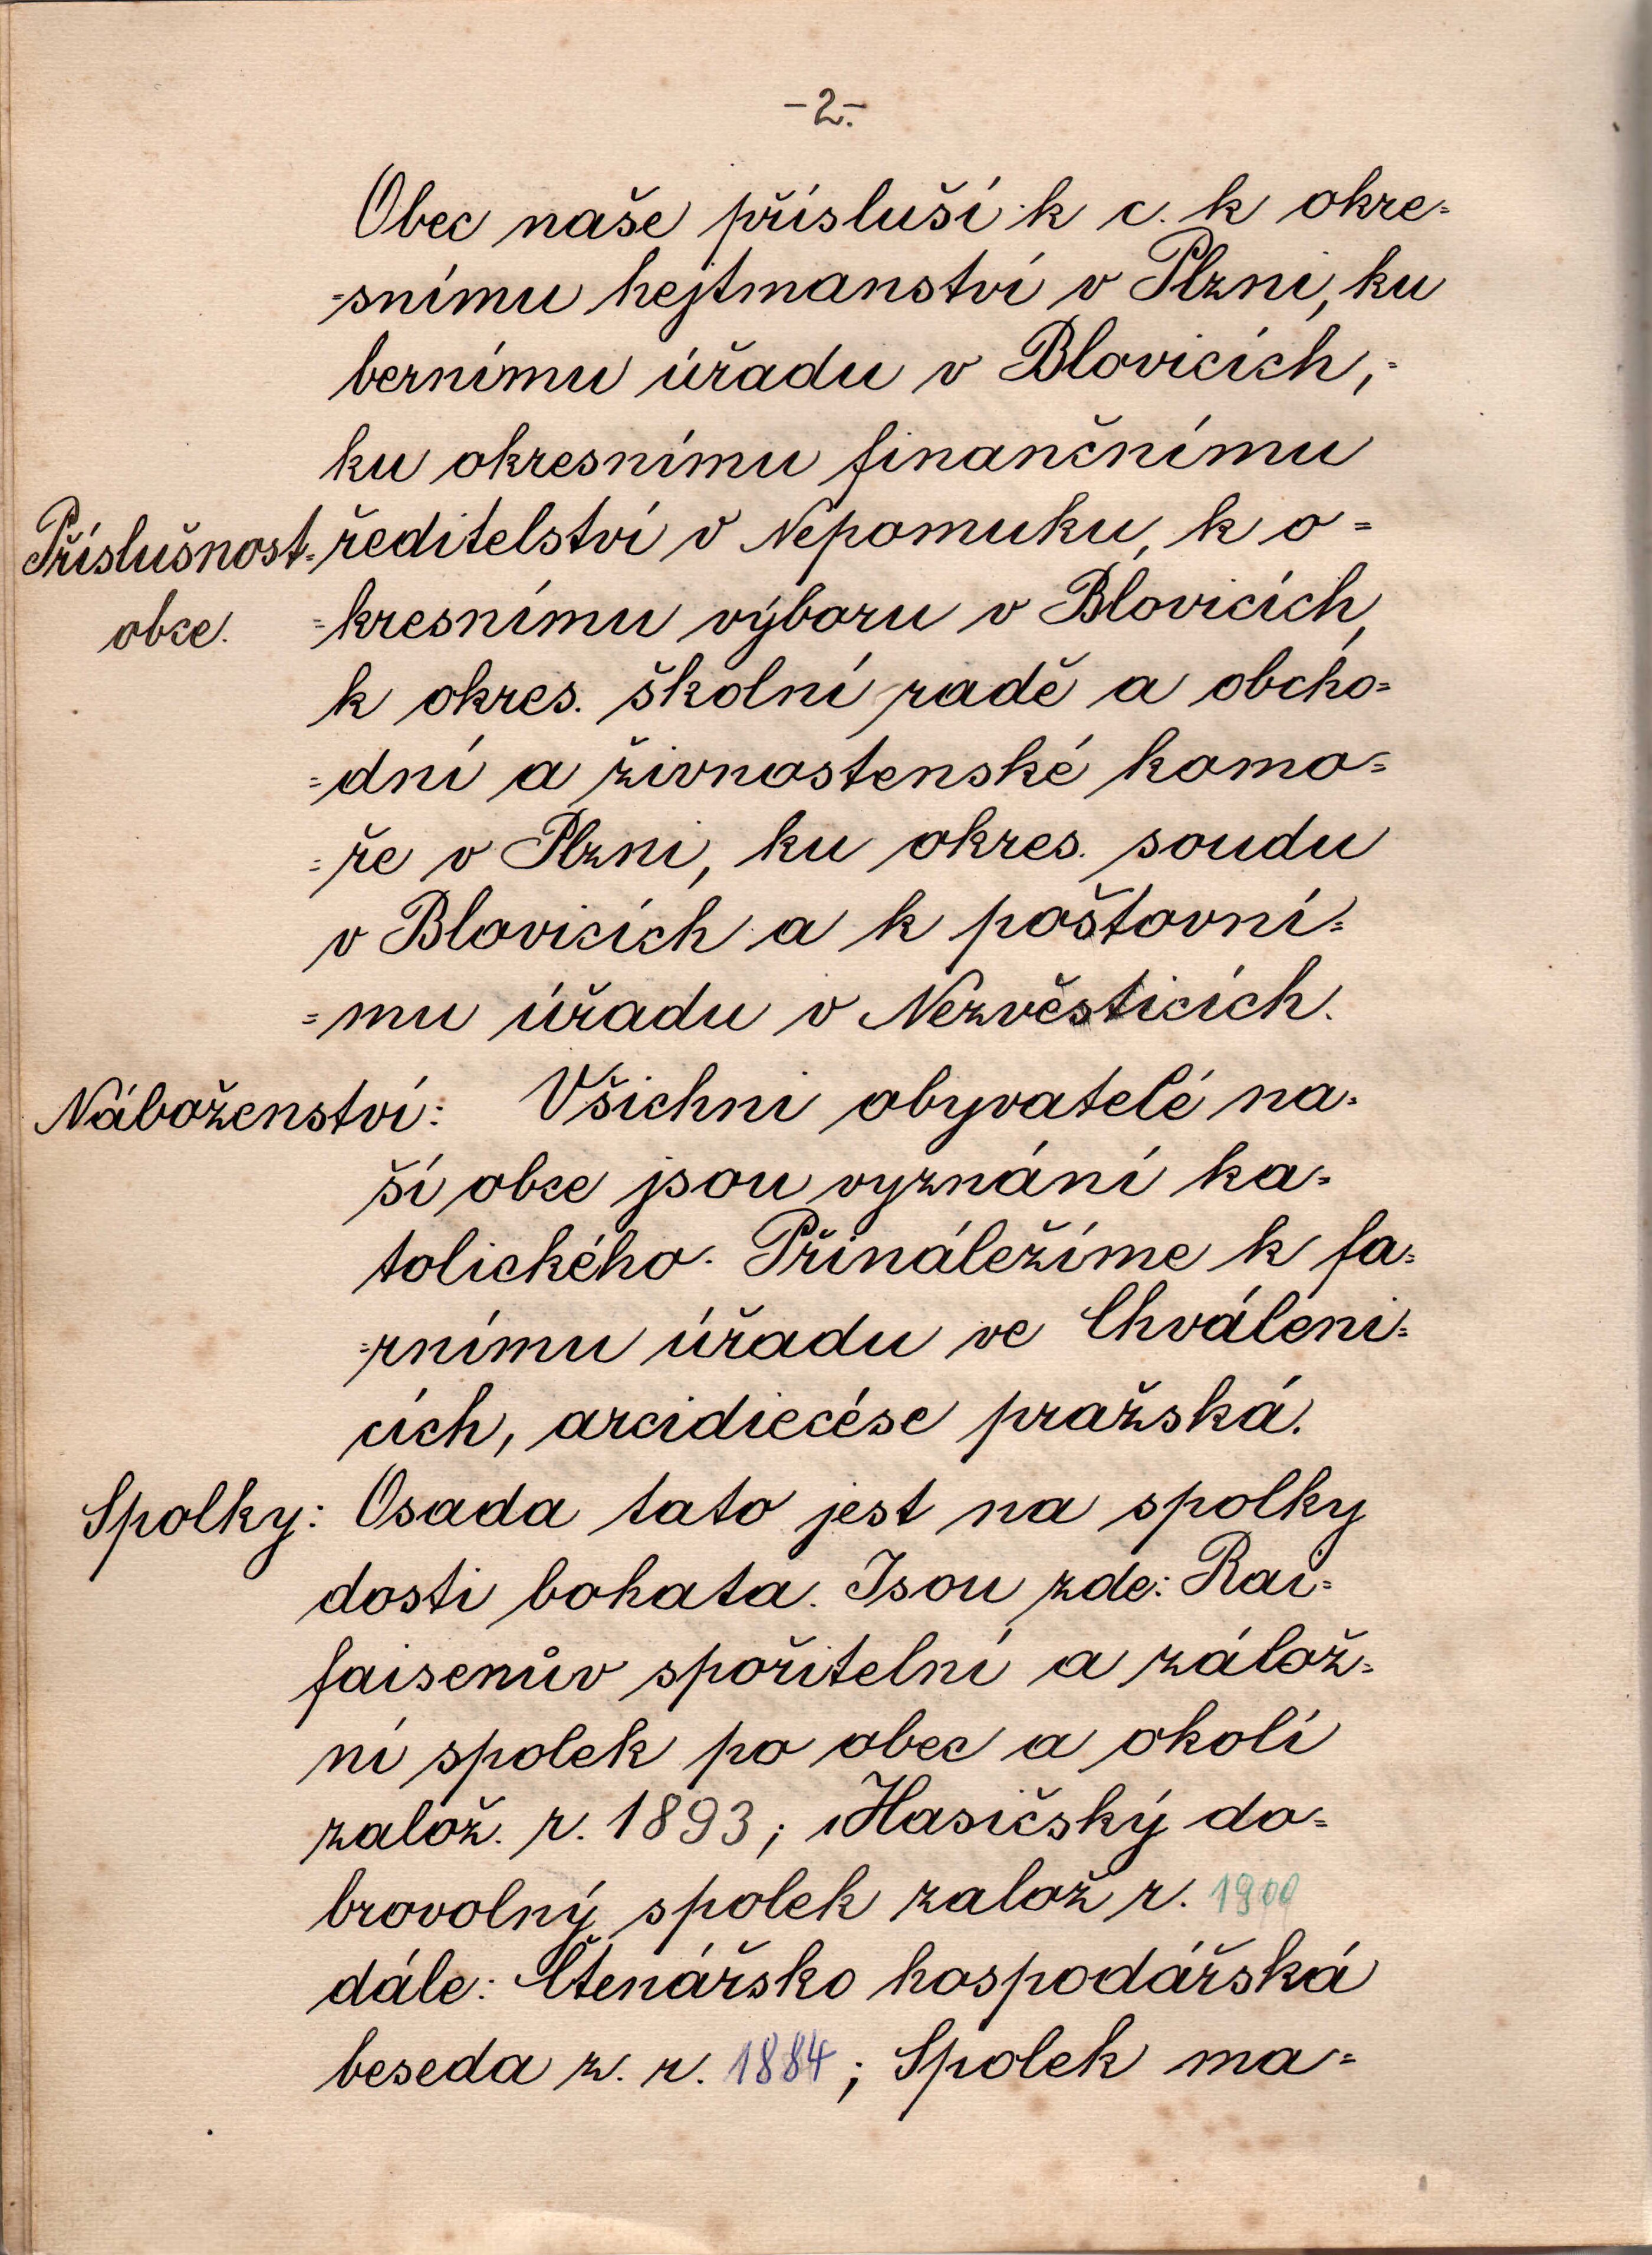 -2.-
Obec naše přísluší k c. k okre=
=snímu hejtmanství v Plzni, ku
bernímu úřadu v Blovicích,=
ku okresnímu finančnímu
Příslušnost= ředitelství v Nepomuku, k o=
obce. =kresnímu výboru v Blovicích,
k okres. školní radě a obcho=
=dní a živnostenské komo=
=ře v Plzni, ku okres. soudu
v Blovicích a k poštovní=
=mu úřadu v Nezvěsticích.
Náboženství: Všichni obyvatelé na=
ší obce jsou vyznání ka=
tolického. Přináležíme k fa=
=rnímu úřadu ve Chváleni=
cích, arcidiecése pražská.
Spolky: Osada tato jest na spolky
dosti bohata. Jsou zde: Rai=
faisenův spořitelní a zálož=
ní spolek po obec a okolí
založ. r. 1893; Hasičský do=
brovolný spolek založ r. 1900
dále: Čtenářsko hospodářská
beseda z. r. 1884; Spolek ma=